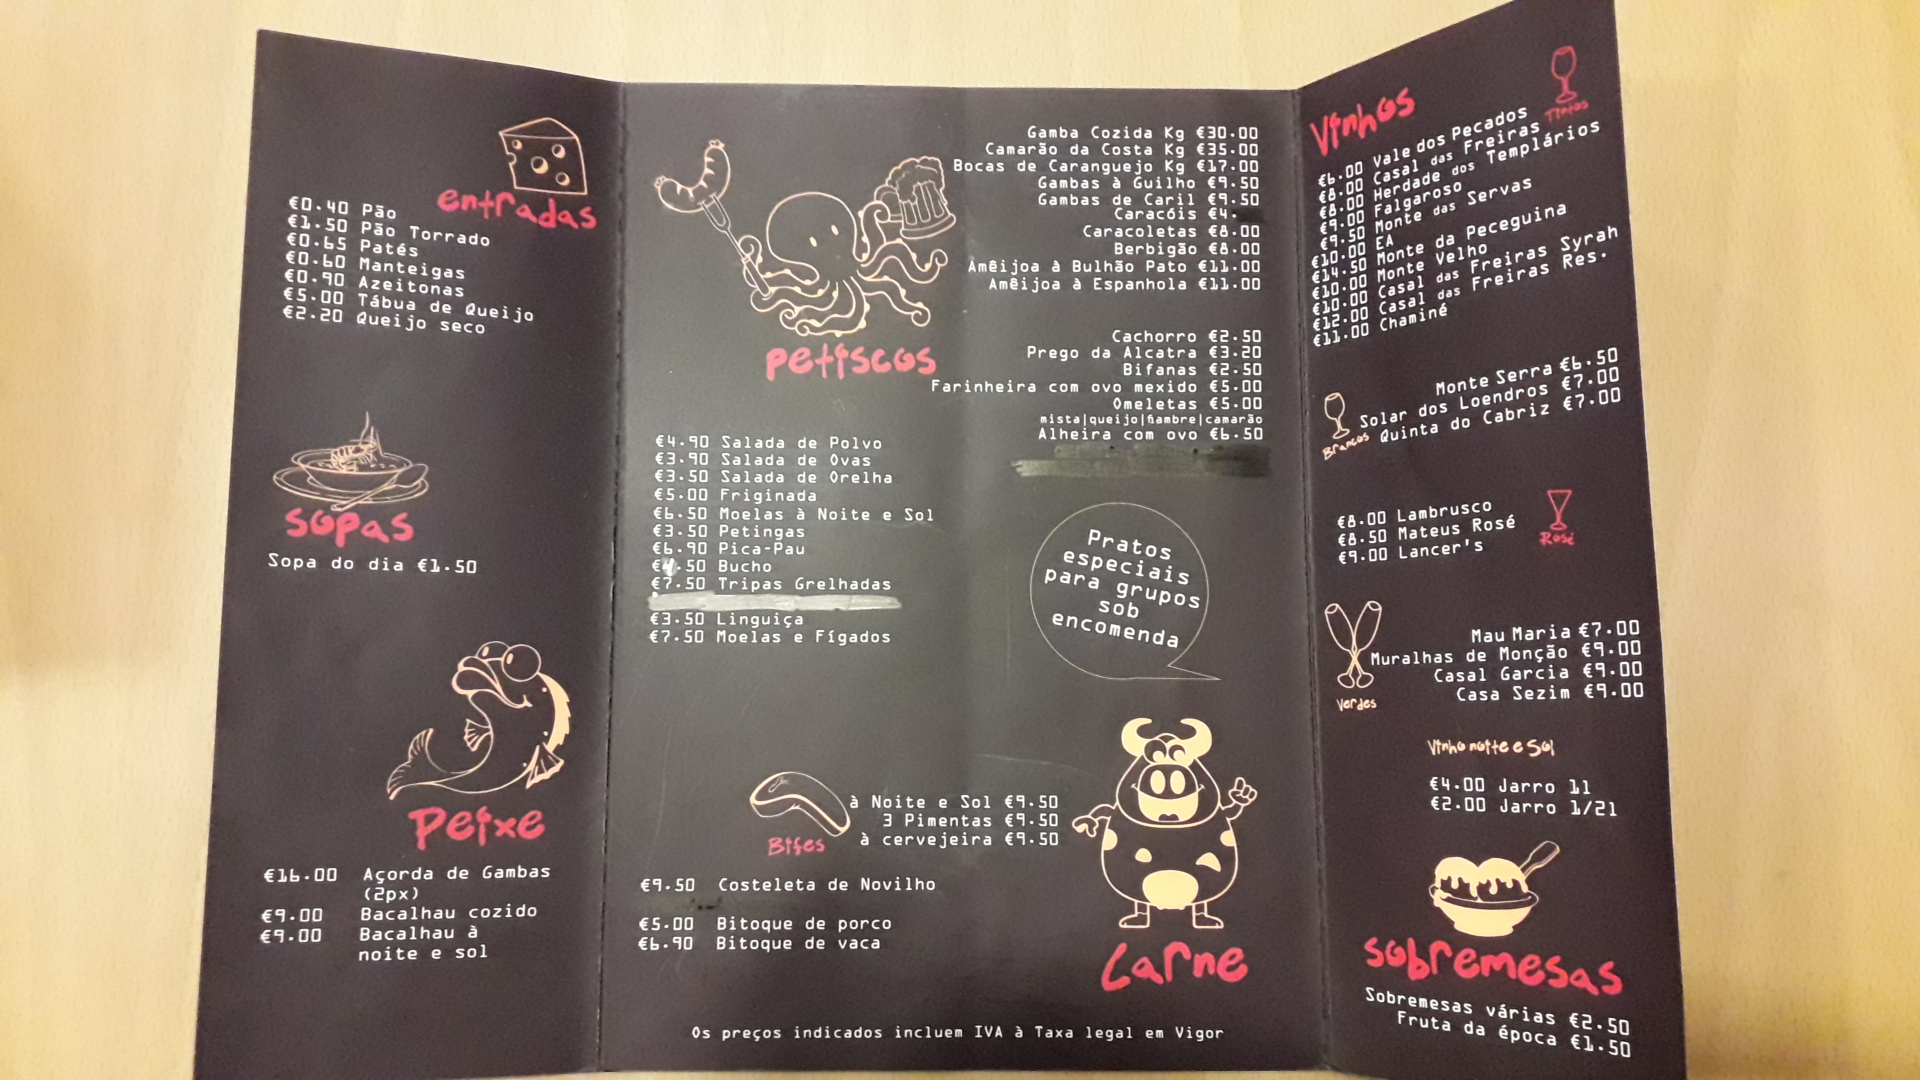 entradas
€0.40 Pão
€1.50 Pão Torrado
€0.65 Patés
€0.60 Manteigas
€0.90 Azeitonas
€5.00 Tábua de Queijo
€2.20 Queijo seco
sopas
Sopa do dia €1.50
Peixe
€16.00 Açorda de Gambas
(2px)
€9.00 Bacalhau cozido
€9.00 Bacalhau à
noite e sol
Petiscos
€4.90 Salada de Polvo
€3.90 Salada de Ovas
€3.50 Salada de Orelha
€5.00 Friginada
€6.50 Moelas à Noite e Sol
€3.50 Petingas
€6.90 Pica-Pau
€4.50 Bucho
€7.50 Tripas Grelhadas
€3.50 Linguiça
€7.50 Moelas e Fígados
Gamba Cozida Kg €30.00
Camarão da Costa Kg €35.00
Bocas de Caranguejo Kg €17.00
Gambas à Guilho €9.50
Gambas de Caril €9.50
Caracóis €4.
Caracoletas €8.00
Berbigão €8.00
Amêijoa à Bulhão Pato €11.00
Amêijoa à Espanhola €11.00
Cachorro €2.50
Prego da Alcatra €3.20
Bifanas €2.50
Farinheira com ovo mexido €5.00
Omeletas €5.00
mista|queijo|fiambre|camarão
Alheira com ovo €6.50
Pratos
especiais
para grupos
sob
encomenda
Bifes
à Noite e Sol €9.50
3 Pimentas €9.50
à cervejeira €9.50
€9.50 Costeleta de Novilho
€5.00 Bitoque de porco
€6.90 Bitoque de vaca
Carne
Os preços indicados incluem IVA à Taxa legal em Vigor
Vinhos
Tintos
€6.00 Vale dos Pecados
€8.00 Casal das Freiras
€8.00 Herdade dos Templários
€9.00 Falgaroso
€9.50 Monte das Servas
€10.00 EA
€14.50 Monte da Peceguina
€10.00 Monte Velho
€10.00 Casal das Freiras Syrah
€12.00 Casal das Freiras Res.
€11.00 Chaminé
Brancos
Monte Serra €6.50
Solar dos Loendros €7.00
Quinta do Cabriz €7.00
€8.00 Lambrusco
€8.50 Mateus Rosé
€9.00 Lancer's
Rosé
Verdes
Mau Maria €7.00
Muralhas de Monção €9.00
Casal Garcia €9.00
Casa Sezim €9.00
Vinho noite e Sol
€4.00 Jarro 1l
€2.00 Jarro 1/2l
sobremesas
Sobremesas várias €2.50
Fruta da época €1.50